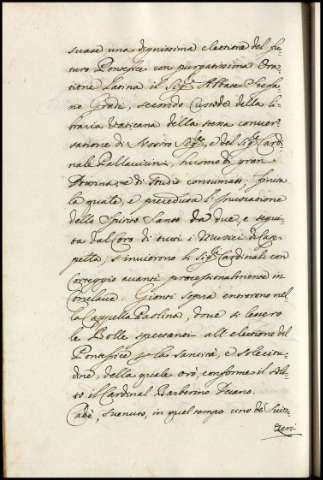 suase una dignissima elettione del fu
turo Pontefice con purgatissima Ora
tione Latina il Sigr. Abbate Stefa
no Gradi, secondo Custode della li
braria Vaticana della stessa conver
satione di Morin, e del Sigr. Card
nale Pallavicini, huomo di gran
Dottrina, e di studio consumato, finita
la quale, e preceduta l'Invocatione
dello Spirito Santo da due, e segui
ta dal Coro di tutti i Musici di Cap
pella, s'inviorno li Sigri. Cardinali con
Corteggio avanti processionalmente in
Conclave. Gionti sopra entrorno nel
la Cappella Paolina, dove si lessero
le Bolle spettanti all'elettione del
Pontefice la Santità, e sollecitu
dine, della quale orò, conforme il soli
to il Cardinal Barberino Decano.
Cadè, svenuto, in quel tempo uno de' Suizz
zeri